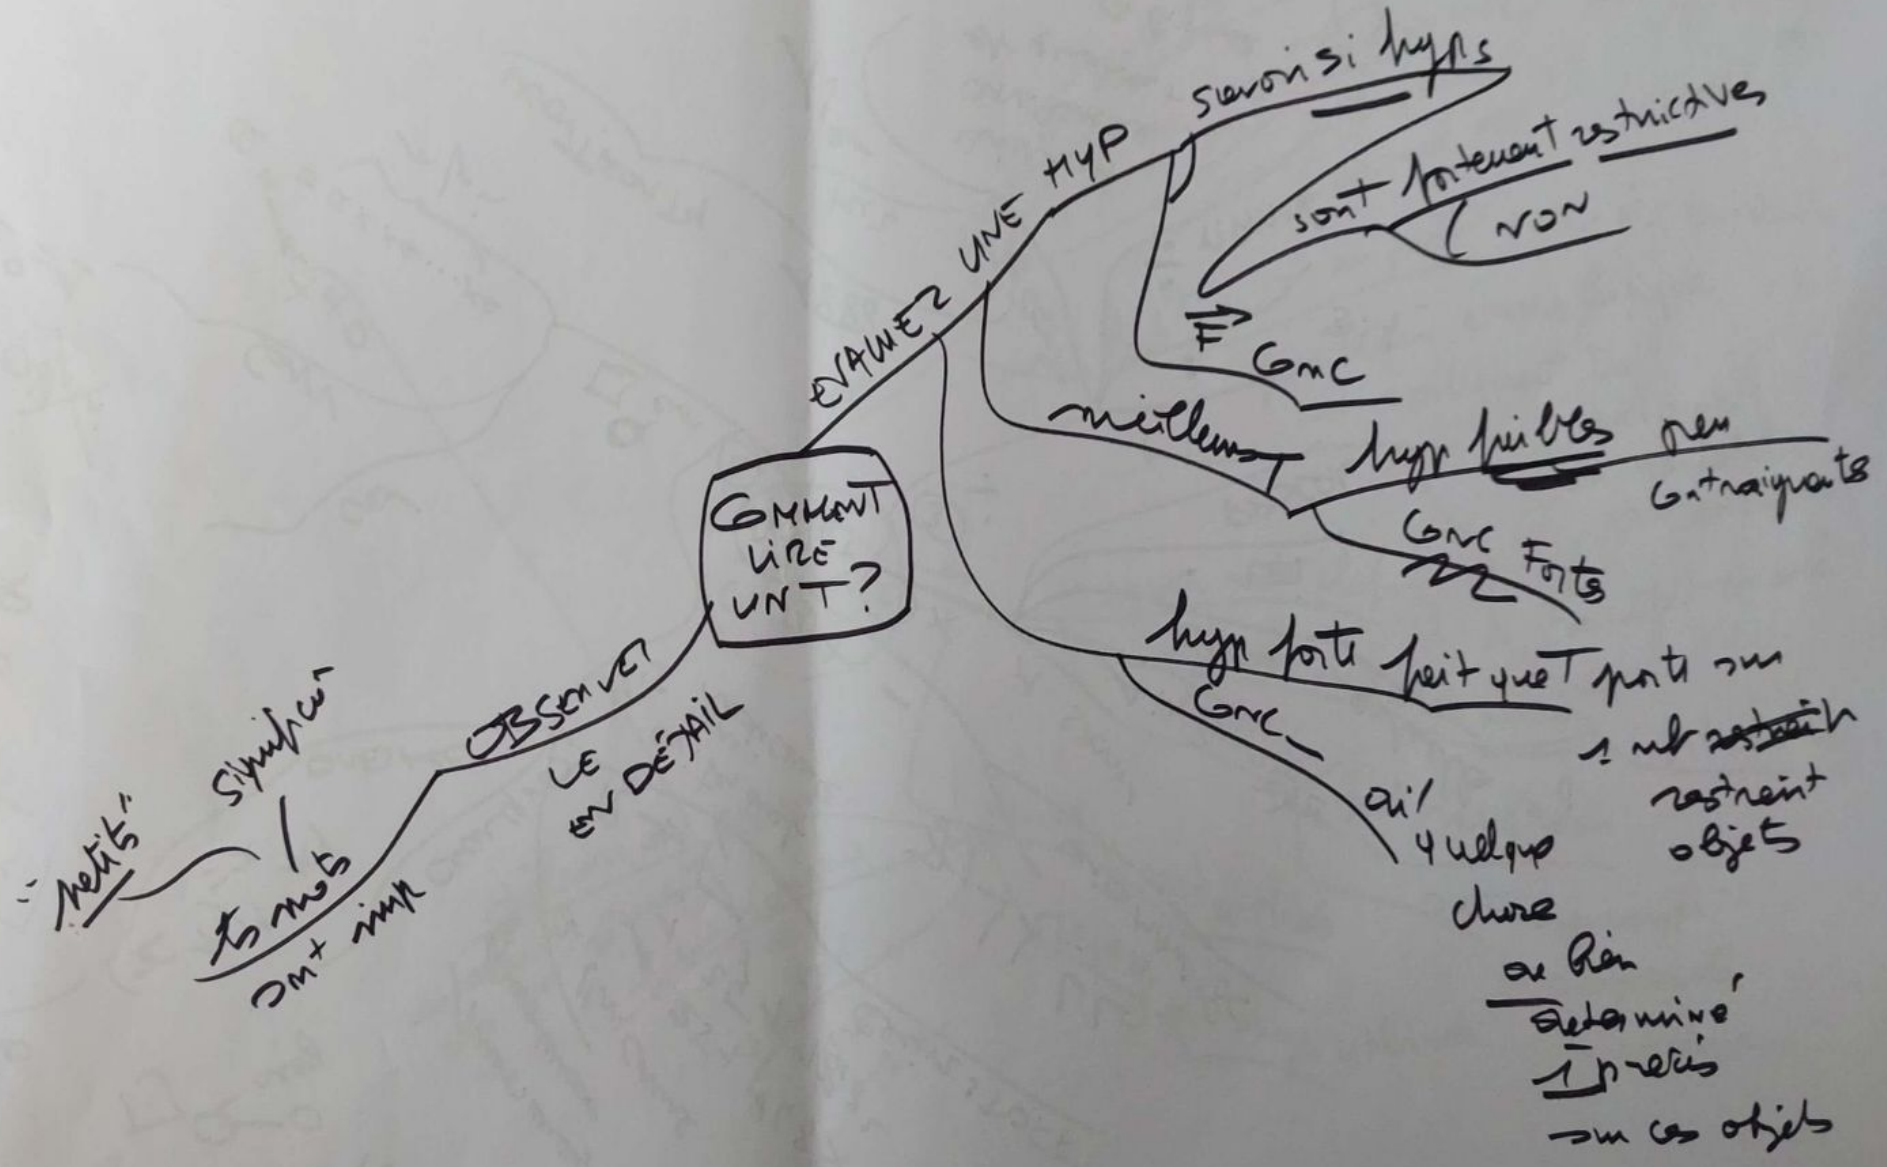 COMMENT
LIRE
UN T?
EVALUER UNE HYP
savoir si hyps
sont fortement restrictives
( NON
F
Conc
meilleurs T
hyp faibles peu
contraignants
Conc Forts
hyp forte fait que T porte sur
1 nb restreint
restreint
objets
Conc
quelque
chose
de bien
determiné
1 precis
sur ces objets
OBSERVER
LE
EN DÉTAIL
ts mots
sont imp
"petits"